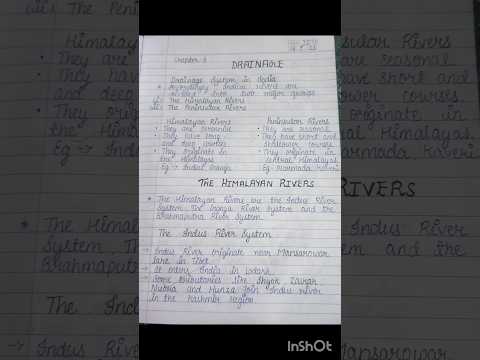 Chapter 3
DRAINAGE
Drainage System in India
Accordingly Indian rivers are
divided into two major groups
i. The Himalayan Rivers
ii. The Peninsular Rivers
Himalayan Rivers
• They are perennial
• They have long
and deep courses
• They originate in
the Himalayas
Eg → Indus Ganga
Peninsular Rivers
• They are seasonal
• They have short and
shallower courses
• They originate in
central Himalayas.
Eg. Narmada Kaveri
THE HIMALAYAN RIVERS
* The Himalayan Rivers are the Indus River
System, The Ganga River System and the
Brahmaputra River System.
The Indus River System
→ Indus River originate near Mansarowar
lake in Tibet
→ It enters India in Ladakh
→ Some tributaries like Shyok Zaskar
Nubra and Hunza join Indus river
in the Kashmir Region
InShOt